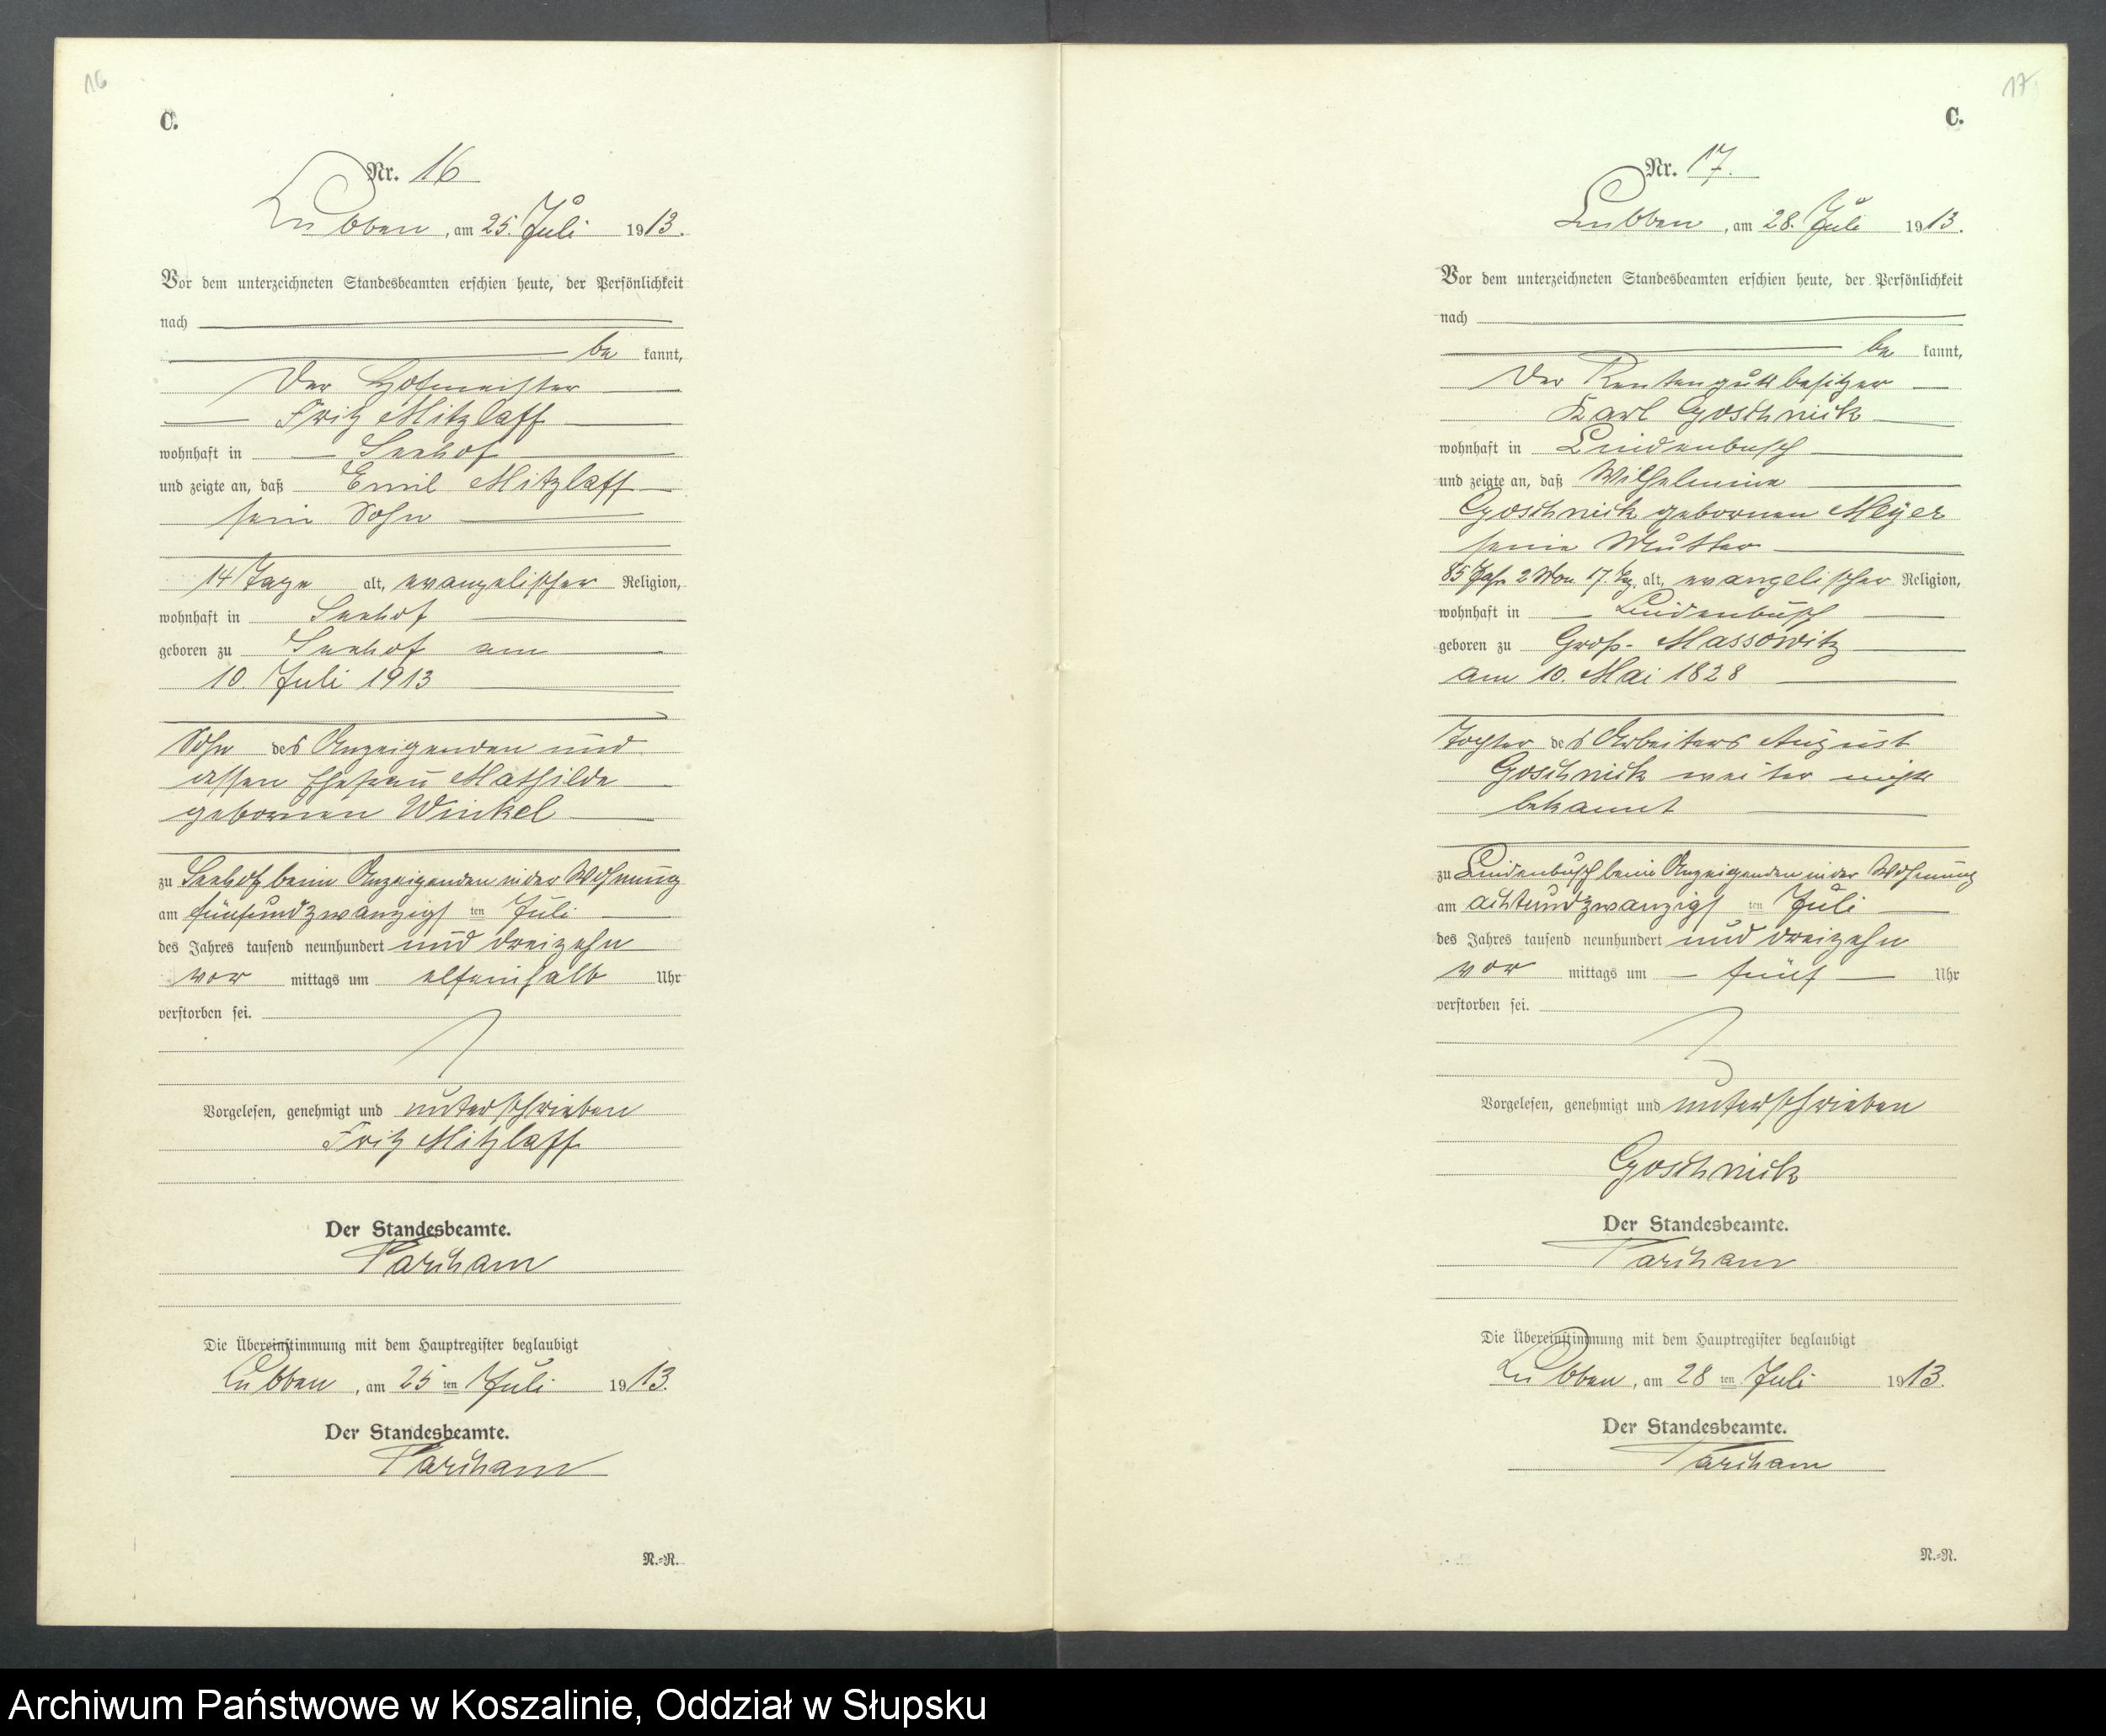 16
C.
Nr. 16
Lubben, am 25. Juli 1913.
Vor dem unterzeichneten Standesbeamten erschien heute, der Persönlichkeit
nach
be kannt,
der Hofmeister
Fritz Mitzlaff
wohnhaft in Seehof
und zeigte an, daß Emil Mitzlaff
sein Sohn
14 Tage alt, evangelischer Religion,
wohnhaft in Seehof
geboren zu Seehof am
10. Juli 1913
Sohn des Anzeigenden und
dessen Ehefrau Mathilde
gebornen Winkel
zu Seehof beim Anzeigenden in der Wohnung
am fünfundzwanzigsten Juli
des Jahres tausend neunhundert und dreizehn
vor mittags um elfeinhalb Uhr
verstorben sei.
Vorgelesen, genehmigt und unterschrieben
Fritz Mitzlaff
Der Standesbeamte.
Parcham
Die Übereinstimmung mit dem Hauptregister beglaubigt
Lubben, am 25 ten Juli 1913.
Der Standesbeamte.
Parcham
N.-R.
17
C.
Nr. 17.
Lubben, am 28. Juli 1913.
Vor dem unterzeichneten Standesbeamten erschien heute, der Persönlichkeit
nach
be kannt,
der Rentengutsbesitzer
Karl Goschnick
wohnhaft in Lindenbusch
und zeigte an, daß Wilhelmine
Goschnick gebornen Meyer
seine Mutter
85 Jahr 2 Mon 17 Tg. alt, evangelischer Religion,
wohnhaft in Lindenbusch
geboren zu Groß-Massowitz
am 10. Mai 1828
Tochter des Arbeiters August
Goschnick weiter nicht
bekannt
zu Lindenbusch beim Anzeigenden in der Wohnung
am achtundzwanzigsten Juli
des Jahres tausend neunhundert und dreizehn
vor mittags um fünf Uhr
verstorben sei.
Vorgelesen, genehmigt und unterschrieben
Goschnick
Der Standesbeamte.
Parcham
Die Übereinstimmung mit dem Hauptregister beglaubigt
Lubben, am 28 ten Juli 1913.
Der Standesbeamte.
Parcham
N.-R.
Archiwum Państwowe w Koszalinie, Oddział w Słupsku